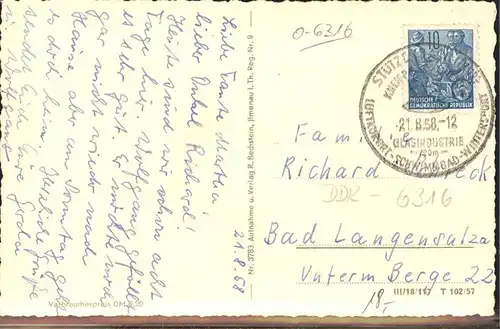 21.8.58
Liebe Tante Martha,
lieber Onkel Richard!
Heute sind wir schon acht
Tage hier. Wolfgang gefällt
es sehr gut. Er möchte
gar nicht wieder nach
Hause aber am Sonntag geht
es doch heim. Herzliche Grüße
sendet Euch Eure
Verbraucherpreis DM 0,20
Nr. 3783 Aufnahme u. Verlag R. Bechstein, Ilmenau i. Th. Reg. Nr. 9
0-6316
10
DEUTSCHE
DEMOKRATISCHE REPUBLIK
STÜTZERBACH
21.8.58.-12
GLASINDUSTRIE
LUFTKURORT - SCHWIMMBAD - WINTERSPORT
Familie
Richard
DDR - 6316
Bad Langensalza
Unterm Berge 22
III/18/197 T 102/57
18,-